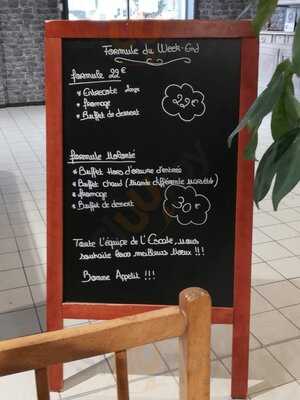 Formule du Week-End
formule 22€
* Entrecote
* fromage
* Buffet de dessert
22€
formule
* Buffet Hors d'oeuvre d'entrée
* Buffet chaud (viande différente
* fromage
* Buffet de dessert
30€
Toute L'équipe de L'Escale, vous
souhaite leurs meilleurs Vœux !!!
Bonne Appetit !!!